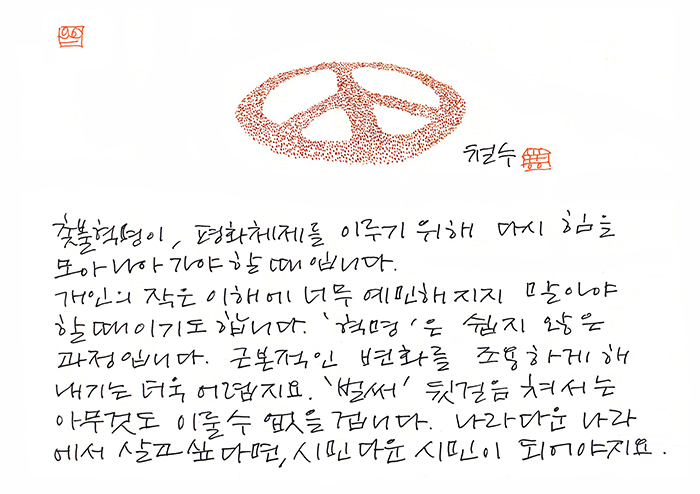 철수
촛불혁명이, 평화체제를 이루기 위해 다시 힘을
모아 나아 가야 할 때 입니다.
개인의 작은 이해에 너무 예민해 지지 말아야
할 때이기도 합니다. '혁명'은 쉽지 않은
과정입니다. 근본적인 변화를 조용하게 해
내기는 더욱 어렵지요. '벌써' 뒷걸음 쳐서는
아무것도 이룰 수 없을 겁니다. 나라다운 나라
에서 살고 싶다면, 시민다운 시민이 되어야지요.